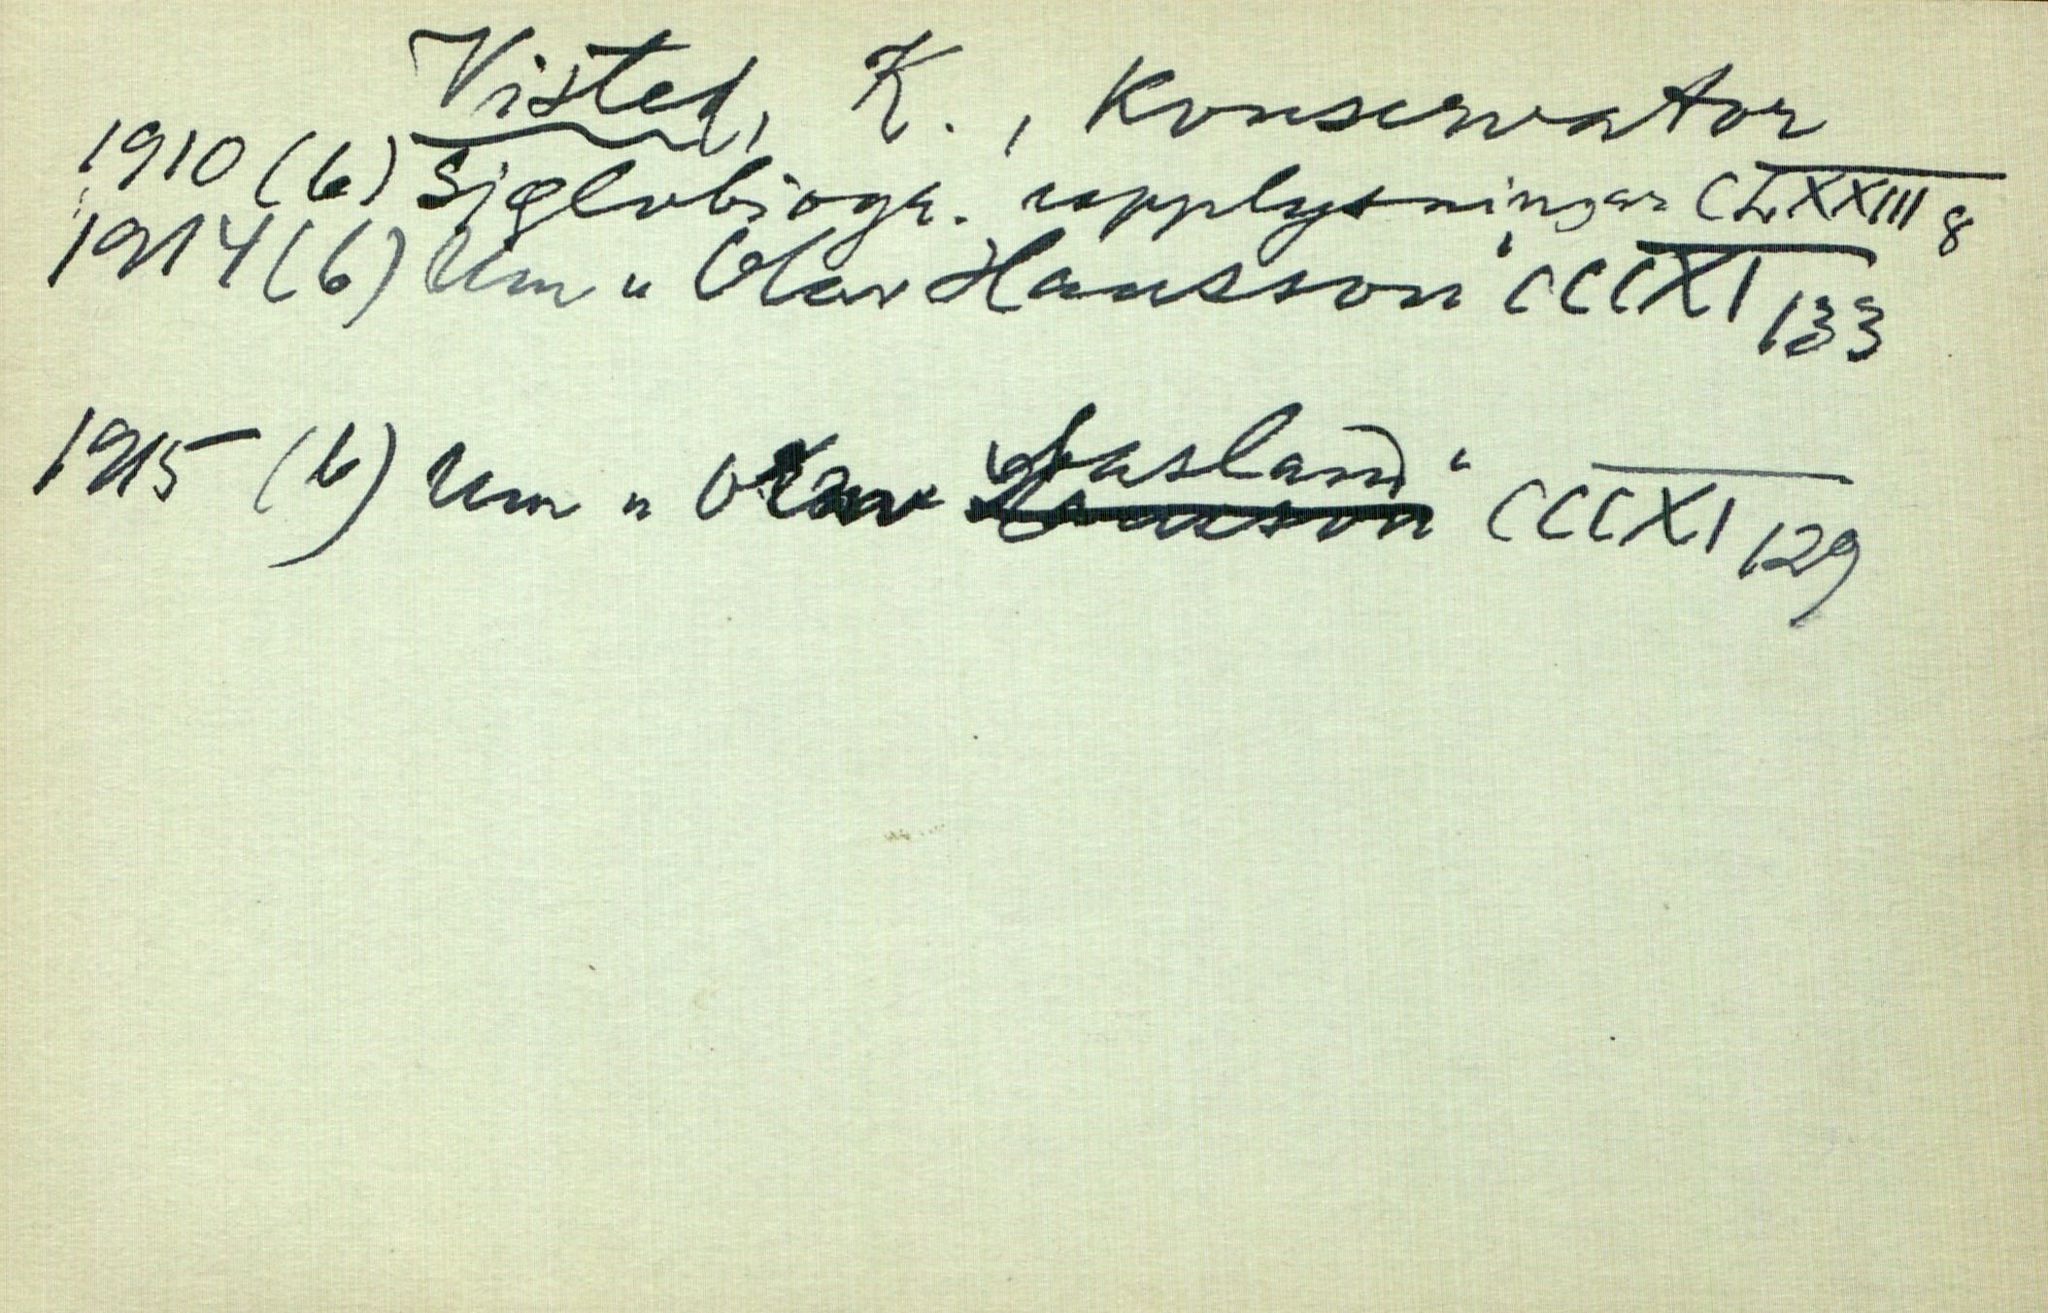 Visted, K., Konservator
1910 (b) Sjglvbiogr. upplysningar CLXXIII 8
1914 (b) Um "Olav Hansson" CCCXI 133
1915 (b) Um " Aasland" CCCXI 129